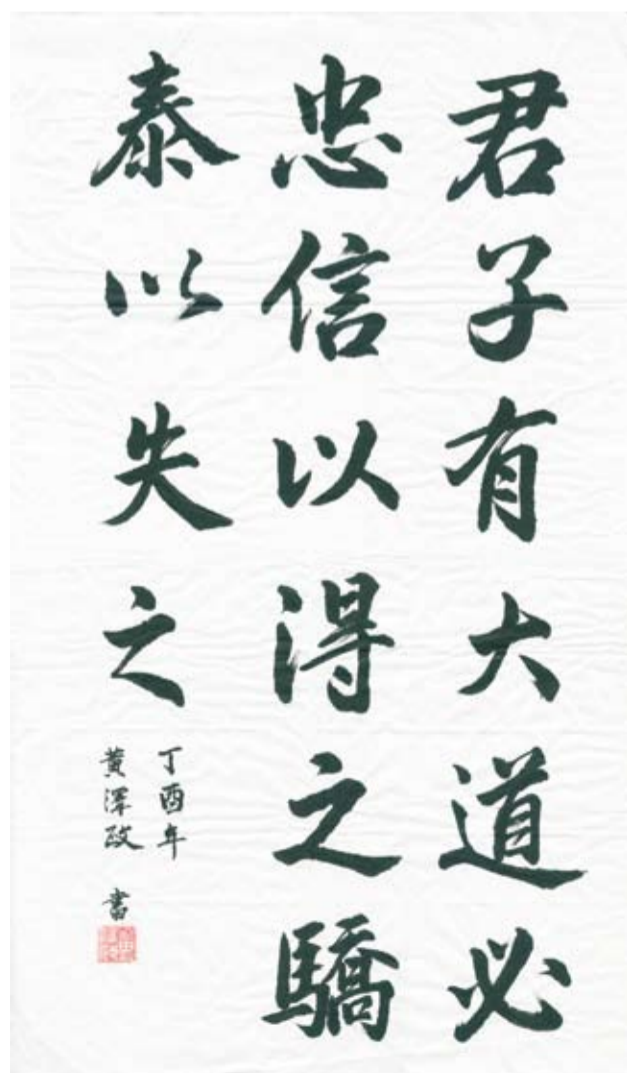 君子有大道必
忠信以得之驕
泰以失之
丁酉年
黃澤政 書